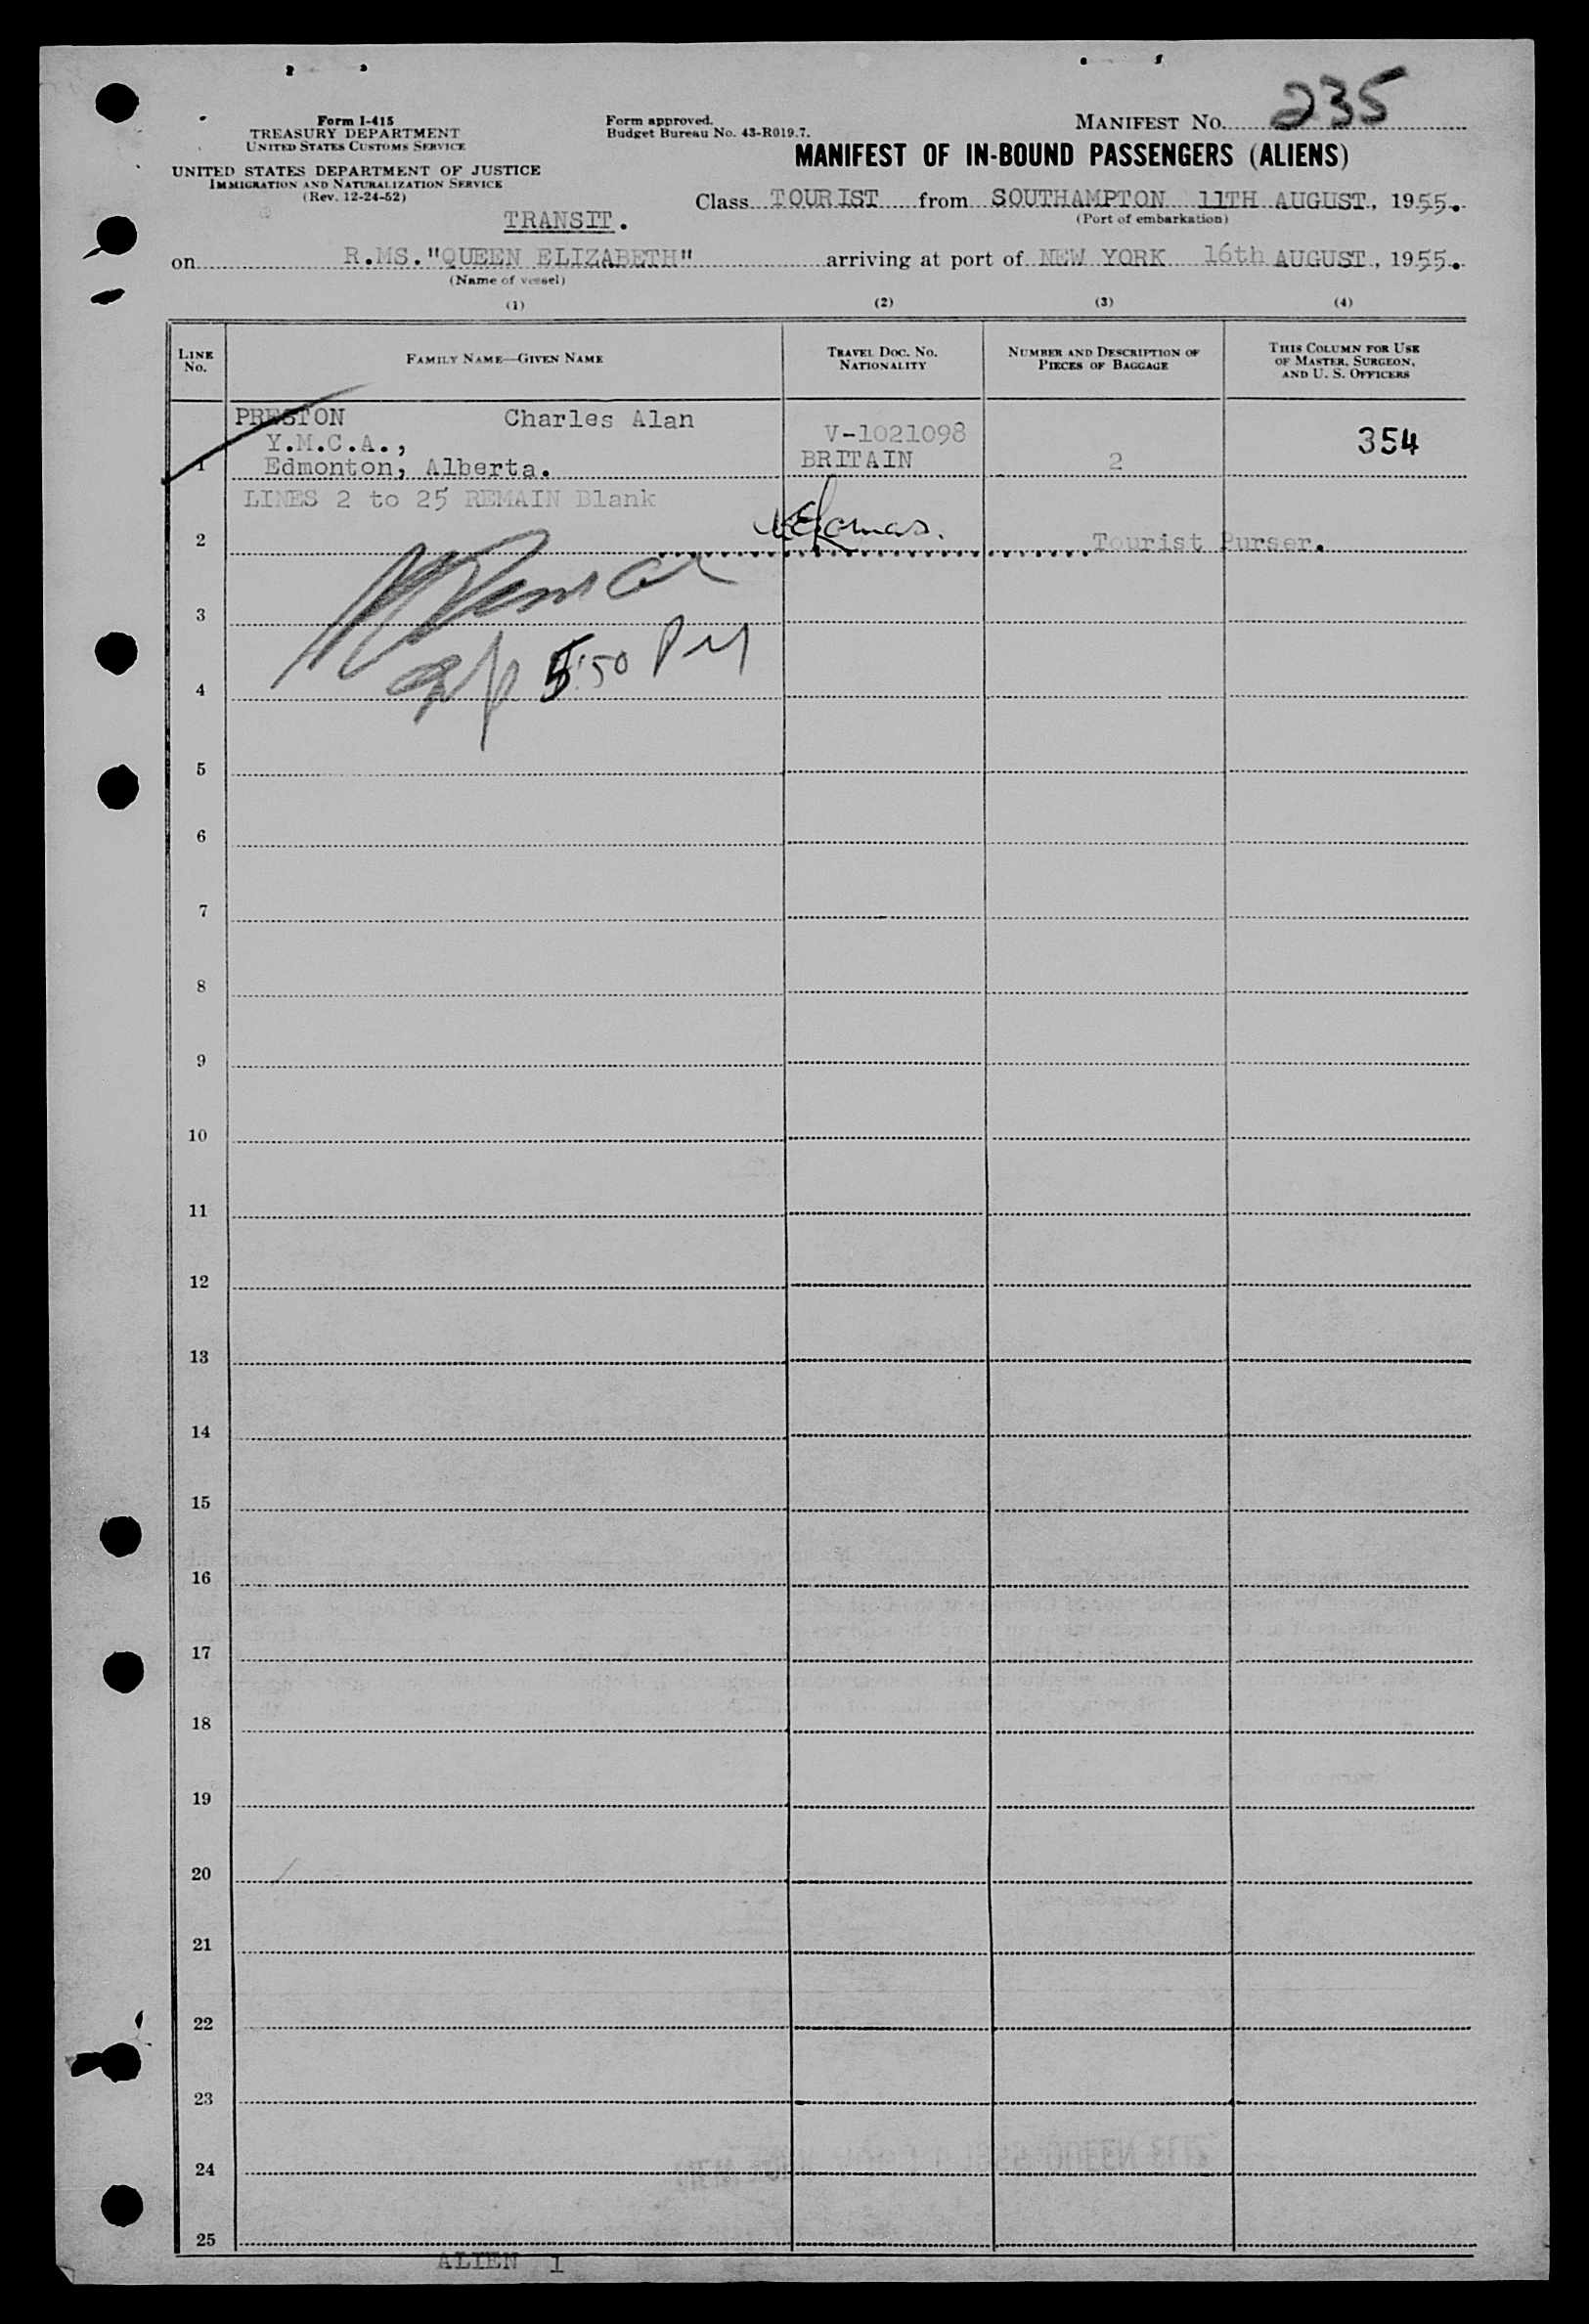 Form I-415
TREASURY DEPARTMENT
UNITED STATES CUSTOMS SERVICE
UNITED STATES DEPARTMENT OF JUSTICE
IMMIGRATION AND NATURALIZATION SERVICE
(Rev. 12-24-52)
Form approved.
Budget Bureau No. 43-R019.7.
MANIFEST NO. 235
MANIFEST OF IN-BOUND PASSENGERS (ALIENS)
Class TOURIST from SOUTHAMPTON 11TH AUGUST, 1955.
(Port of embarkation)
TRANSIT.
on R.MS."QUEEN ELIZABETH" arriving at port of NEW YORK 16th AUGUST, 1955.
(Name of vessel)
(1) (2) (3) (4)
LINE NO. FAMILY NAME—GIVEN NAME TRAVEL DOC. NO. NATIONALITY NUMBER AND DESCRIPTION OF PIECES OF BAGGAGE THIS COLUMN FOR USE OF MASTER, SURGEON, AND U. S. OFFICERS
PRESTON Charles Alan
Y.M.C.A., V-1021098 354
1 Edmonton, Alberta. BRITAIN 2
LINES 2 to 25 REMAIN Blank
2 Tourist Purser.
3
4 5:50 PM
5
6
7
8
9
10
11
12
13
14
15
16
17
18
19
20
21
22
23
24
25
ALIEN 1